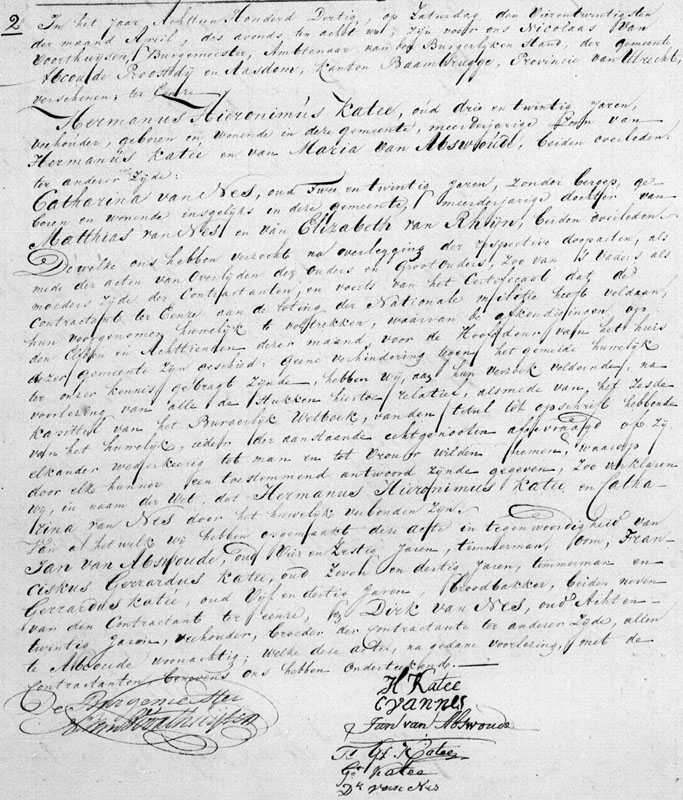 2 In het Jaar Achttien Honderd Dertig, op Zaturdag den Vierentwintigsten
der maand April, des avonds, ten acht ure; zijn voor ons Nicolaas van
Voorthuijsen, Burgemeester, Ambtenaar van den Burgerlijken Stand, der gemeente
Abcoude Proostdij en Aasdom, kanton Baambrugge, Provincie van Utrecht,
verschenen; ter Eenre
Hermanus Hieronimus Katee, oud drie en twintig Jaren,
veehouder, geboren en wonende in deze gemeente, meerderjarige Zoon van
Hermanus Katee en van Maria van Abswoude, beiden overleden.
ter anderer Zijde:
Catharina van Nes, oud Twee en twintig Jaren, Zonder beroep, ge-
boren en wonende insgelijks in deze gemeente, meerderjarige dochter van
Matthias van Nes en van Elizabeth van Rhijn, beiden overleden.
Dewelke ons hebben verzocht na overlegging der respective doopacten, als
mede der acten van overlijden des ouders en Grootouders, Zoo van 's Vaders als
moeders Zijde der Contractanten; en voorts van het Certificaat dat de
Contractant ter Eenre aan de loting der Nationale militie heeft voldaan,
hun voorgenomen huwelijk te voltrekken, waarvan de afkondigingen op
den Elfden en Achttienden dezer maand voor de Hoofddeur van het huis
dezer gemeente Zijn geschied: geene verhindering tegen het gemelde huwelijk
ter onzer kennis gebragt Zijnde, hebben wij, aan hun verzoek voldoende, na
voorlezing van alle de Stukken hiertoe relatief, alsmede van het Zesde
kapittel van het Burgerlijk Wetboek, van den titul tot opschrift hebbende
van het huwelijk, ieder der aanstaande echtgenooten afgevraagd op Zij
elkander wederkeerig tot man en tot Vrouw wilden nemen, waarop
door elk hunner een toestemmend antwoord Zijnde gegeven, Zoo verklaren
wij, in naam der Wet, dat Hermanus Hieronimus Katee en Catha-
rina van Nes door het huwelijk verbonden Zijn.
Van al het welk wij hebben opgemaakt deze acte in tegenwoordigheid van
Jan van Abswoude, oud Vier en Zestig Jaren, timmerman, oom, Fran-
ciskus Gerrardus Katee, oud Zeven en dertig Jaren, timmerman en
Gerrardus Katee, oud Vijf en dertig Jaren, broodbakker, beiden neven
van den Contractant ter eenre, en Dirk van Nes, oud Acht en-
twintig Jaren, veehouder, broeder der contractante ter anderer Zijde, allen
te Abcoude woonachtig; welke deze acte, na gedane voorlezing, met de
Contractanten benevens ons hebben ondertekend.
De Burgemeester
H Katee
C van nes
Jan van Abswoude
Gs Katee
Gr Katee
Dk van Nes